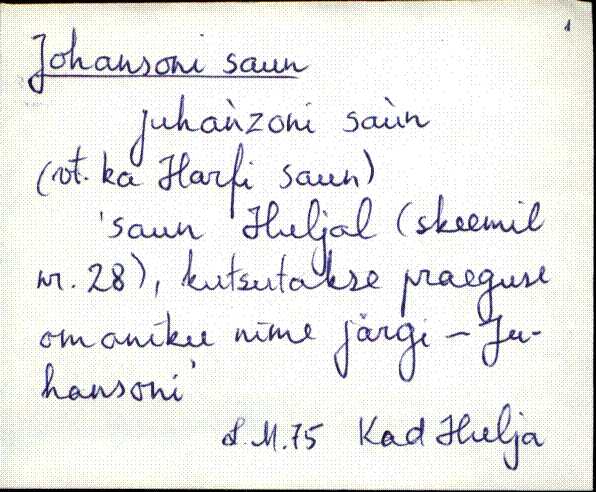 1
Johansoni saun
juhàǹzoni saùn
(vt. ka Harfi saun)
'saun Huljal (skeemil
nr. 28), kutsutakse praeguse
omaniku nime järgi – Ju-
hansoni'
L.M.75 Kad Hulja